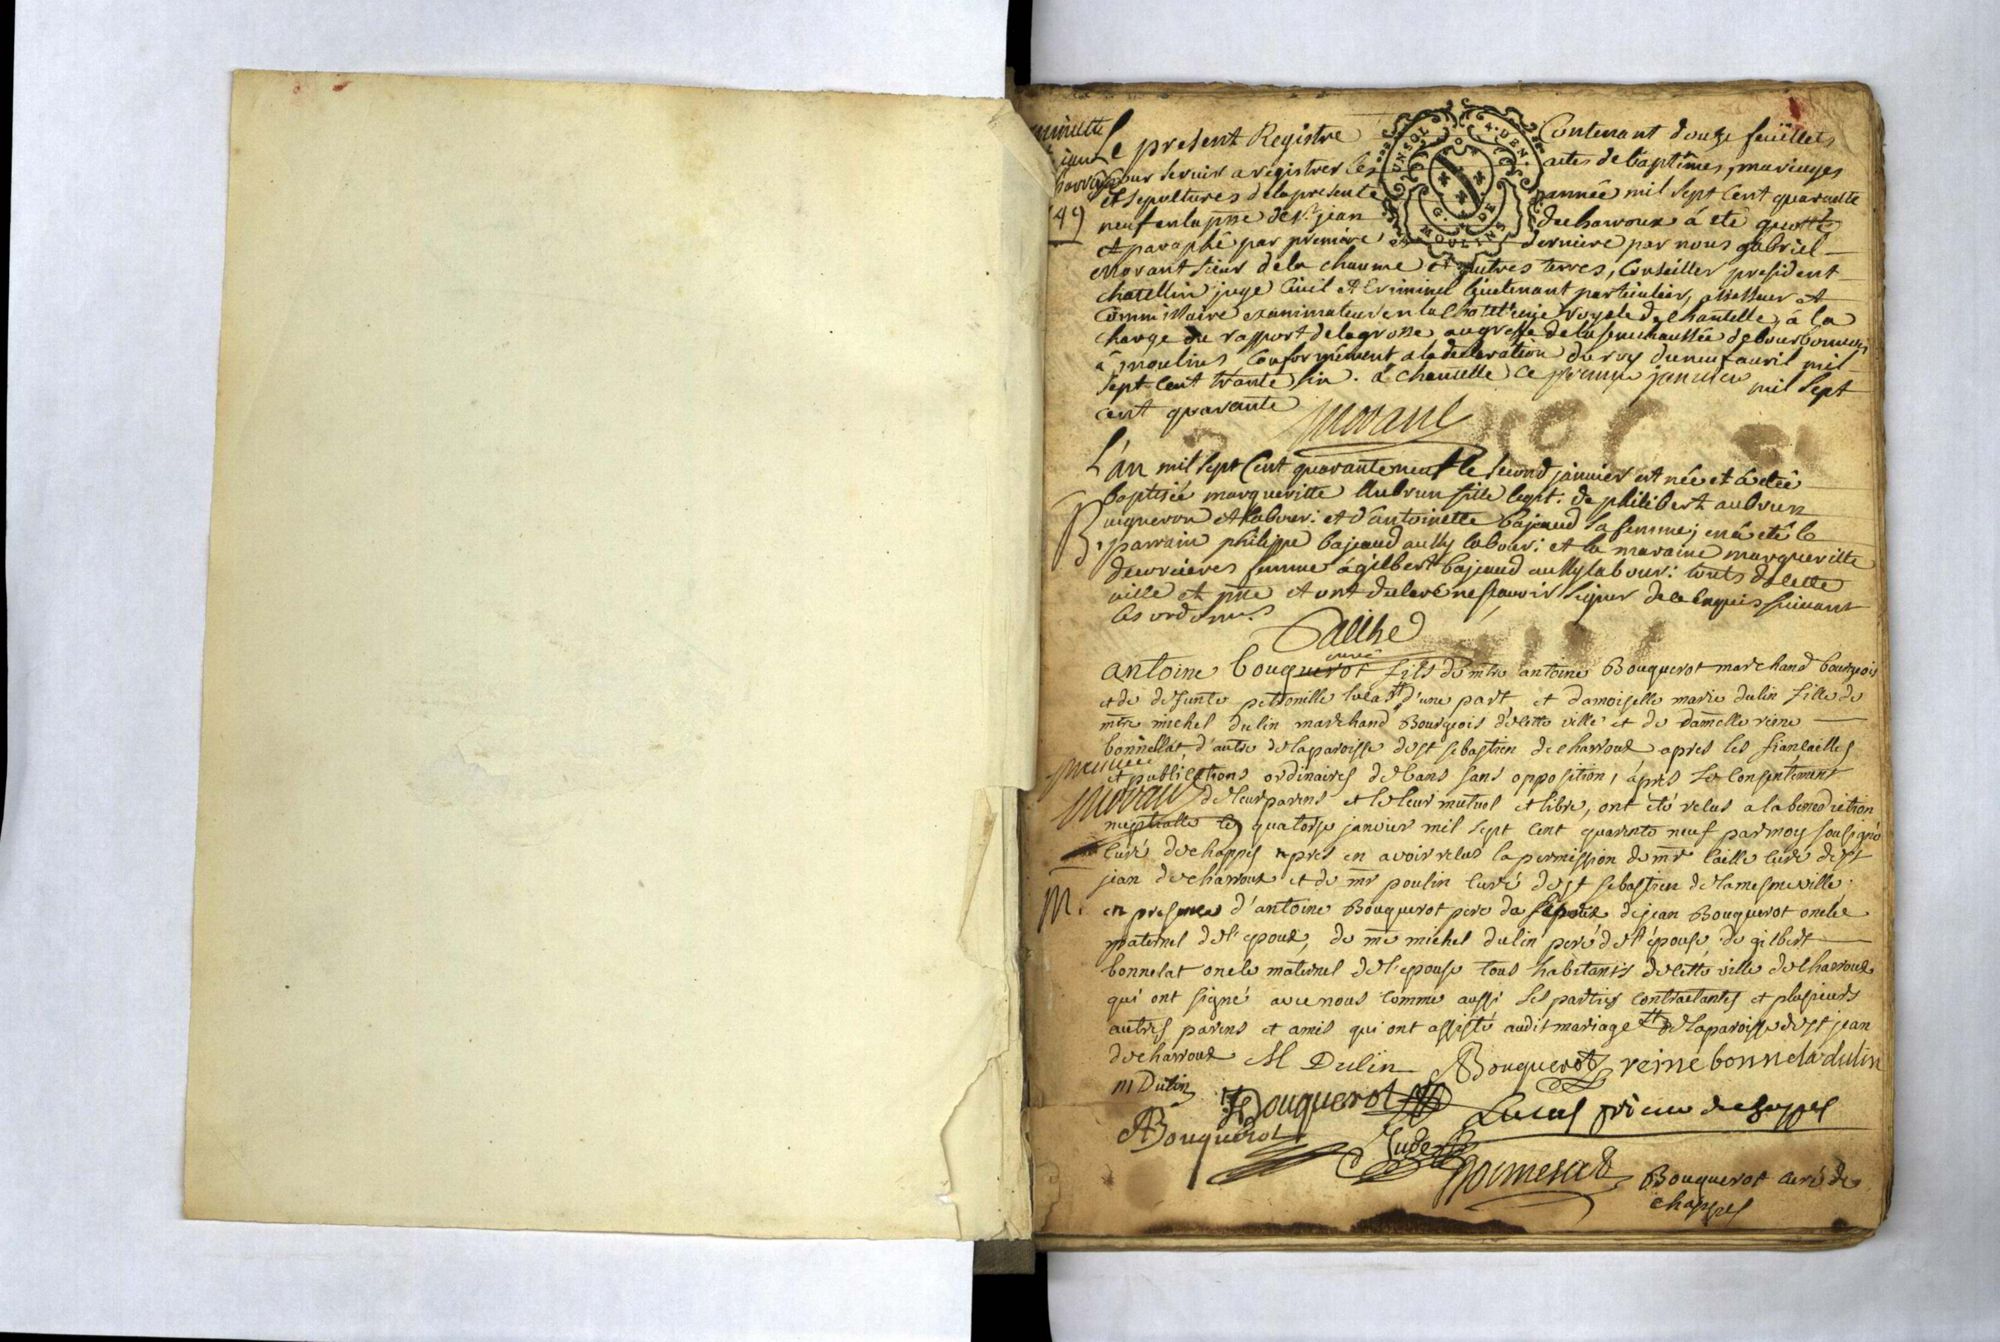 minutte
Le present Registre Contenant douze feuillets
pour servir a registrer les actes de baptêmes, mariages
et sepultures de la presente année mil sept cent quarante
neuf en la psse de st jean de charroux á eté quotté
et paraphé par premiere et derniere par nous gabriel
morant sieur de la chaume et autres terres, Conseiller president
chatellin juge Civil et Criminel lieutenant particulier, assesseur et
Commissaire examinateur en la chatellnie royale de chantelle, á la
charge du rapport de la grosse au greffe de la senechaussée de bourbonnois
á moulins Conformément a la declaration du roy du neuf avril mil
sept cent trante six. á chantelle ce premier janvier mil sept
cent quarante
49
morant
L'an mil sept Cent quarante neuf le second janvier est née et á eté
baptisée margueritte Aubrun fille legit. de philibert aubrun
B. vigneron et labour: et d'antoinette bajeaud sa femme; en á été le
parrain philippe bajeaud aussy labour: et la maraine margueritte
femme á gilbert bajeaud aussy labour: touts de cette
ville et psse et ont declaré ne sçavoir signer de ce enquis suivant
les ordonn.
Cailhe
curé
antoine bouquerot fils de mtre antoine Bouquerot marchand bourgeois
et de defunte petronille lucas d'une part, et damoiselle marie dulin fille de
mtre michel dulin marchand Bourgeois de cette ville et de damelle reine
bonnellat d'autre de la paroisse de st sebastien de charroux apres les fiancailles
et publications ordinaires de bans sans opposition, áprès le Consentement
morant
de leurs parens et le leur mutuel et libre, ont été relus a la benediction
nuptialle le quatorse janvier mil sept cent quarente neuf par moy sousigné
Curé de chappes apres en avoir relus la permission de mr caille curé de st
jean de charroux et de mr poulin curé de st sebastien de la mesme ville.
M. en presence d'antoine Bouquerot pere de l'epoux de jean Bouquerot oncle
paternel de l'epoux, de me michel dulin peré de l'épouse de gilbert
bonnelat oncle maternel de l'epouse tous habitants de cette ville de charroux
qui ont signé avec nous comme aussi les parties contractantes et plusieurs
autres parens et amis qui ont assisté audit mariage de la paroisse de st jean
de charroux M Dulin ABouquerot reine bonnela dulin
m Dulin Bouquerot Lucas prieur de chappes
ABouquerot
Bouquerot curé de
chappes